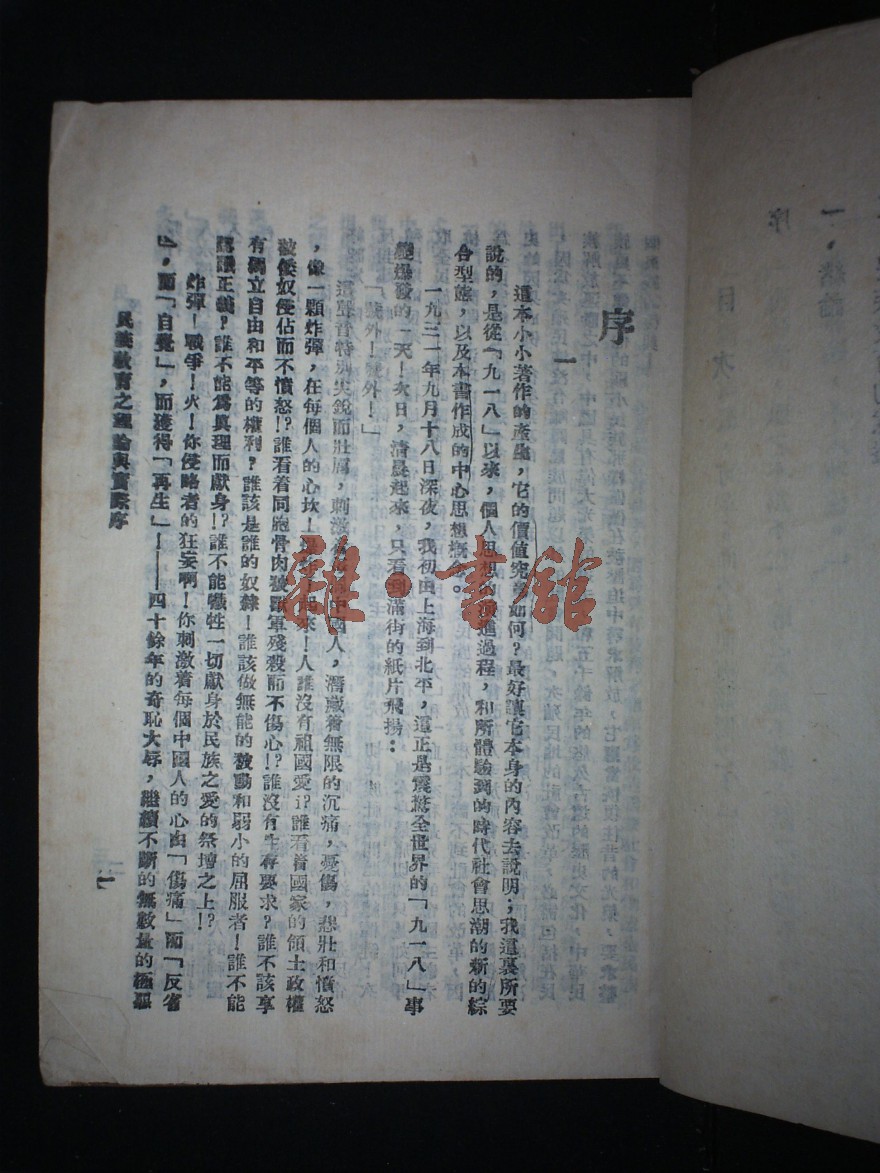 序
一
這本小小著作的產生，它的價值究竟如何？最好讓它本身的內容去說明；我這裏所要
說的，是從「九一八」以來，個人思想的演進過程，和所體驗到的時代社會思潮的新的綜
合型態，以及本書作成的中心思想概念。
一九三一年九月十八日深夜，我初由上海到北平，這正是震撼全世界的「九一八」事
變爆發的一天！次日，清晨起來，只看到滿街的紙片飛揚：
「號外！號外！」
這聲音特別尖銳而壯厲，刺激着每個中國人，潛藏着無限的沉痛，憂傷，悲壯和憤怒
，像一顆炸彈，在每個人的心坎上爆炸起來！人誰沒有祖國愛？誰看着國家的領土政權
被倭奴侵佔而不憤怒！？誰看着同胞骨肉被敵軍殘殺而不傷心！？誰沒有生存要求？誰不該享
有獨立自由和平等的權利？誰該是誰的奴隸！誰該做無能的被動和弱小的屈服者！誰不能
擁護正義？誰不能爲真理而獻身！？誰不能犧牲一切獻身於民族之愛的祭壇之上！？
炸彈！戰爭！火！你侵略者的狂妄啊！你刺激着每個中國人的心由「傷痛」而「反省
」，而「自覺」，而獲得「再生」！——四十餘年的奇恥大辱，繼續不斷的無數量的
民族教育之理論與實際序
一
雜·書館
序
目次
一、緒論